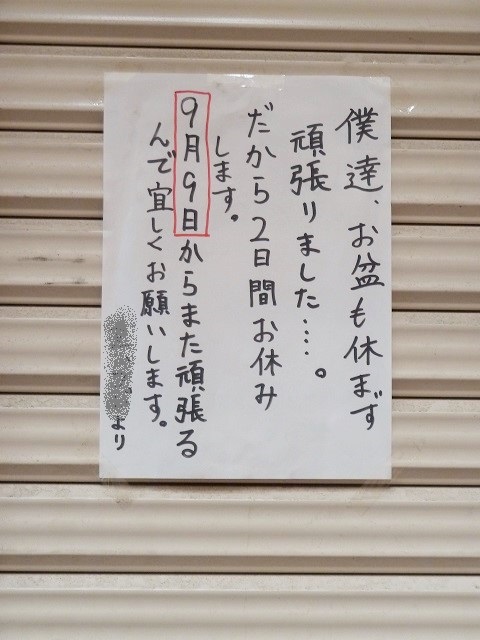 僕達、お盆も休まず
頑張りました……。
だから2日間お休み
します。
9月9日からまた頑張る
んで宜しくお願いします。
より